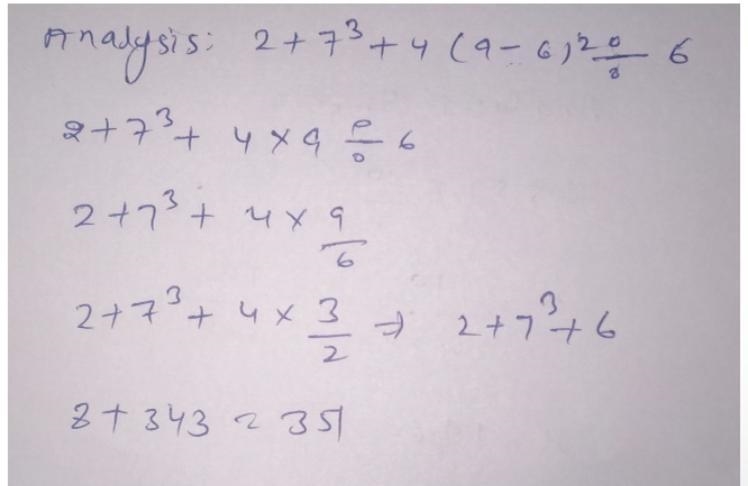 Analysis: 2 + 7³ + 4 (9 - 6)² ÷ 6
2 + 7³ + 4 × 9 ÷ 6
2 + 7³ + 4 × 9/6
2 + 7³ + 4 × 3/2 ⇒ 2 + 7³ + 6
8 + 343 = 351